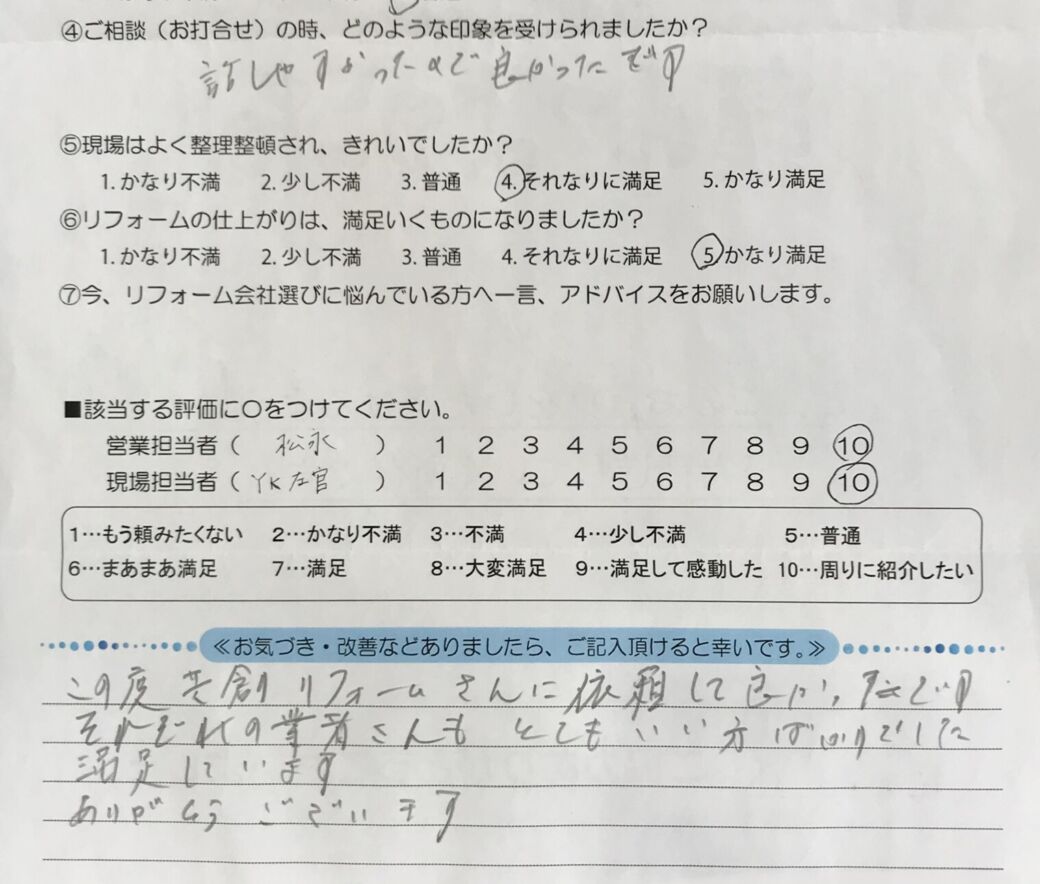 ④ご相談（お打合せ）の時、どのような印象を受けられましたか？
話しやすかったので良かったです
⑤現場はよく整理整頓され、きれいでしたか？
1.かなり不満 2.少し不満 3.普通 4.それなりに満足 5.かなり満足
⑥リフォームの仕上がりは、満足いくものになりましたか？
1.かなり不満 2.少し不満 3.普通 4.それなりに満足 5.かなり満足
⑦今、リフォーム会社選びに悩んでいる方へ一言、アドバイスをお願いします。
■該当する評価に〇をつけてください。
営業担当者（ 松永 ） 1 2 3 4 5 6 7 8 9 10
現場担当者（ YK左官 ） 1 2 3 4 5 6 7 8 9 10
1…もう頼みたくない 2…かなり不満 3…不満 4…少し不満 5…普通
6…まあまあ満足 7…満足 8…大変満足 9…満足して感動した 10…周りに紹介したい
≪お気づき・改善などありましたら、ご記入頂けると幸いです。≫
この度共創リフォームさんに依頼して良かったです
それぞれの業者さんもとてもいい方ばかりでした
満足しています
ありがとうございます